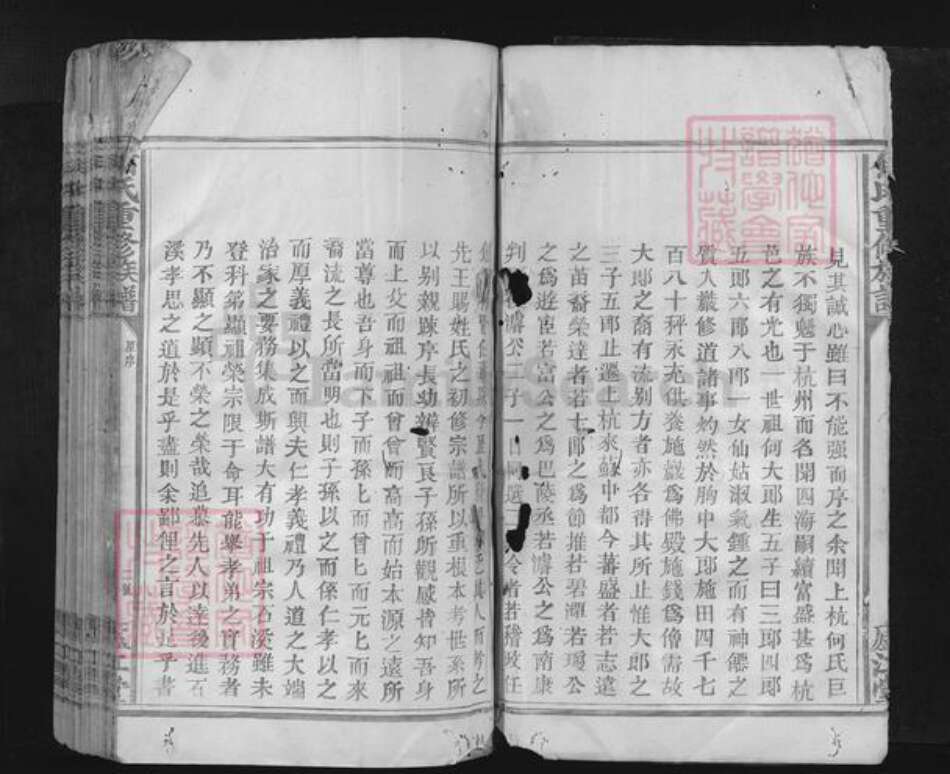 見其誠心雖曰不能强而序之余聞上杭何氏巨
族不獨魁于杭州而名聞四海嗣續富盛甚爲杭
邑之有光也一世祖何大郎生五子曰三郎四郎
五郎六郎八郎一女仙姑淑氣鍾之而有神僊之
質入嚴修道諸事灼然於胸中大郎施田四千七
百八十秤永充供養施嚴爲佛殿施錢爲僧壽故
大郎之裔有流别方者亦各得其所止惟大郎之
三子五郎止遷上杭來蘇中都今蕃盛者若志遠
之苗裔榮達者若七郎之爲節推若碧潭若瑗公
之爲遊宦若富公之爲巴陵丞若濬公之爲南康
判 濬公二子一日同選 令者若稽政任
先王賜姓氏之初修宗譜所以重根本考世系所
以别親踈序長幼辨賢良子孫所觀感昔知吾身
而上父而祖祖而曾曾而高高而始本源之遠所
當尊也吾身而下子而孫孫而曾曾而元元而來
裔流之長所當明也則子孫以之而係仁孝以之
而厚義禮以之而興夫仁孝義禮乃人道之大端
治家之要務集成斯譜大有功于祖宗石溪雖未
登科第顯祖榮宗限于命耳能舉孝弟之實務者
乃不顯之顯不榮之榮哉追慕先人以達後進石
溪孝思之道於是乎盡則余鄙俚之言於是乎書
氏重修族譜
原序
氏重修族譜
廬江堂